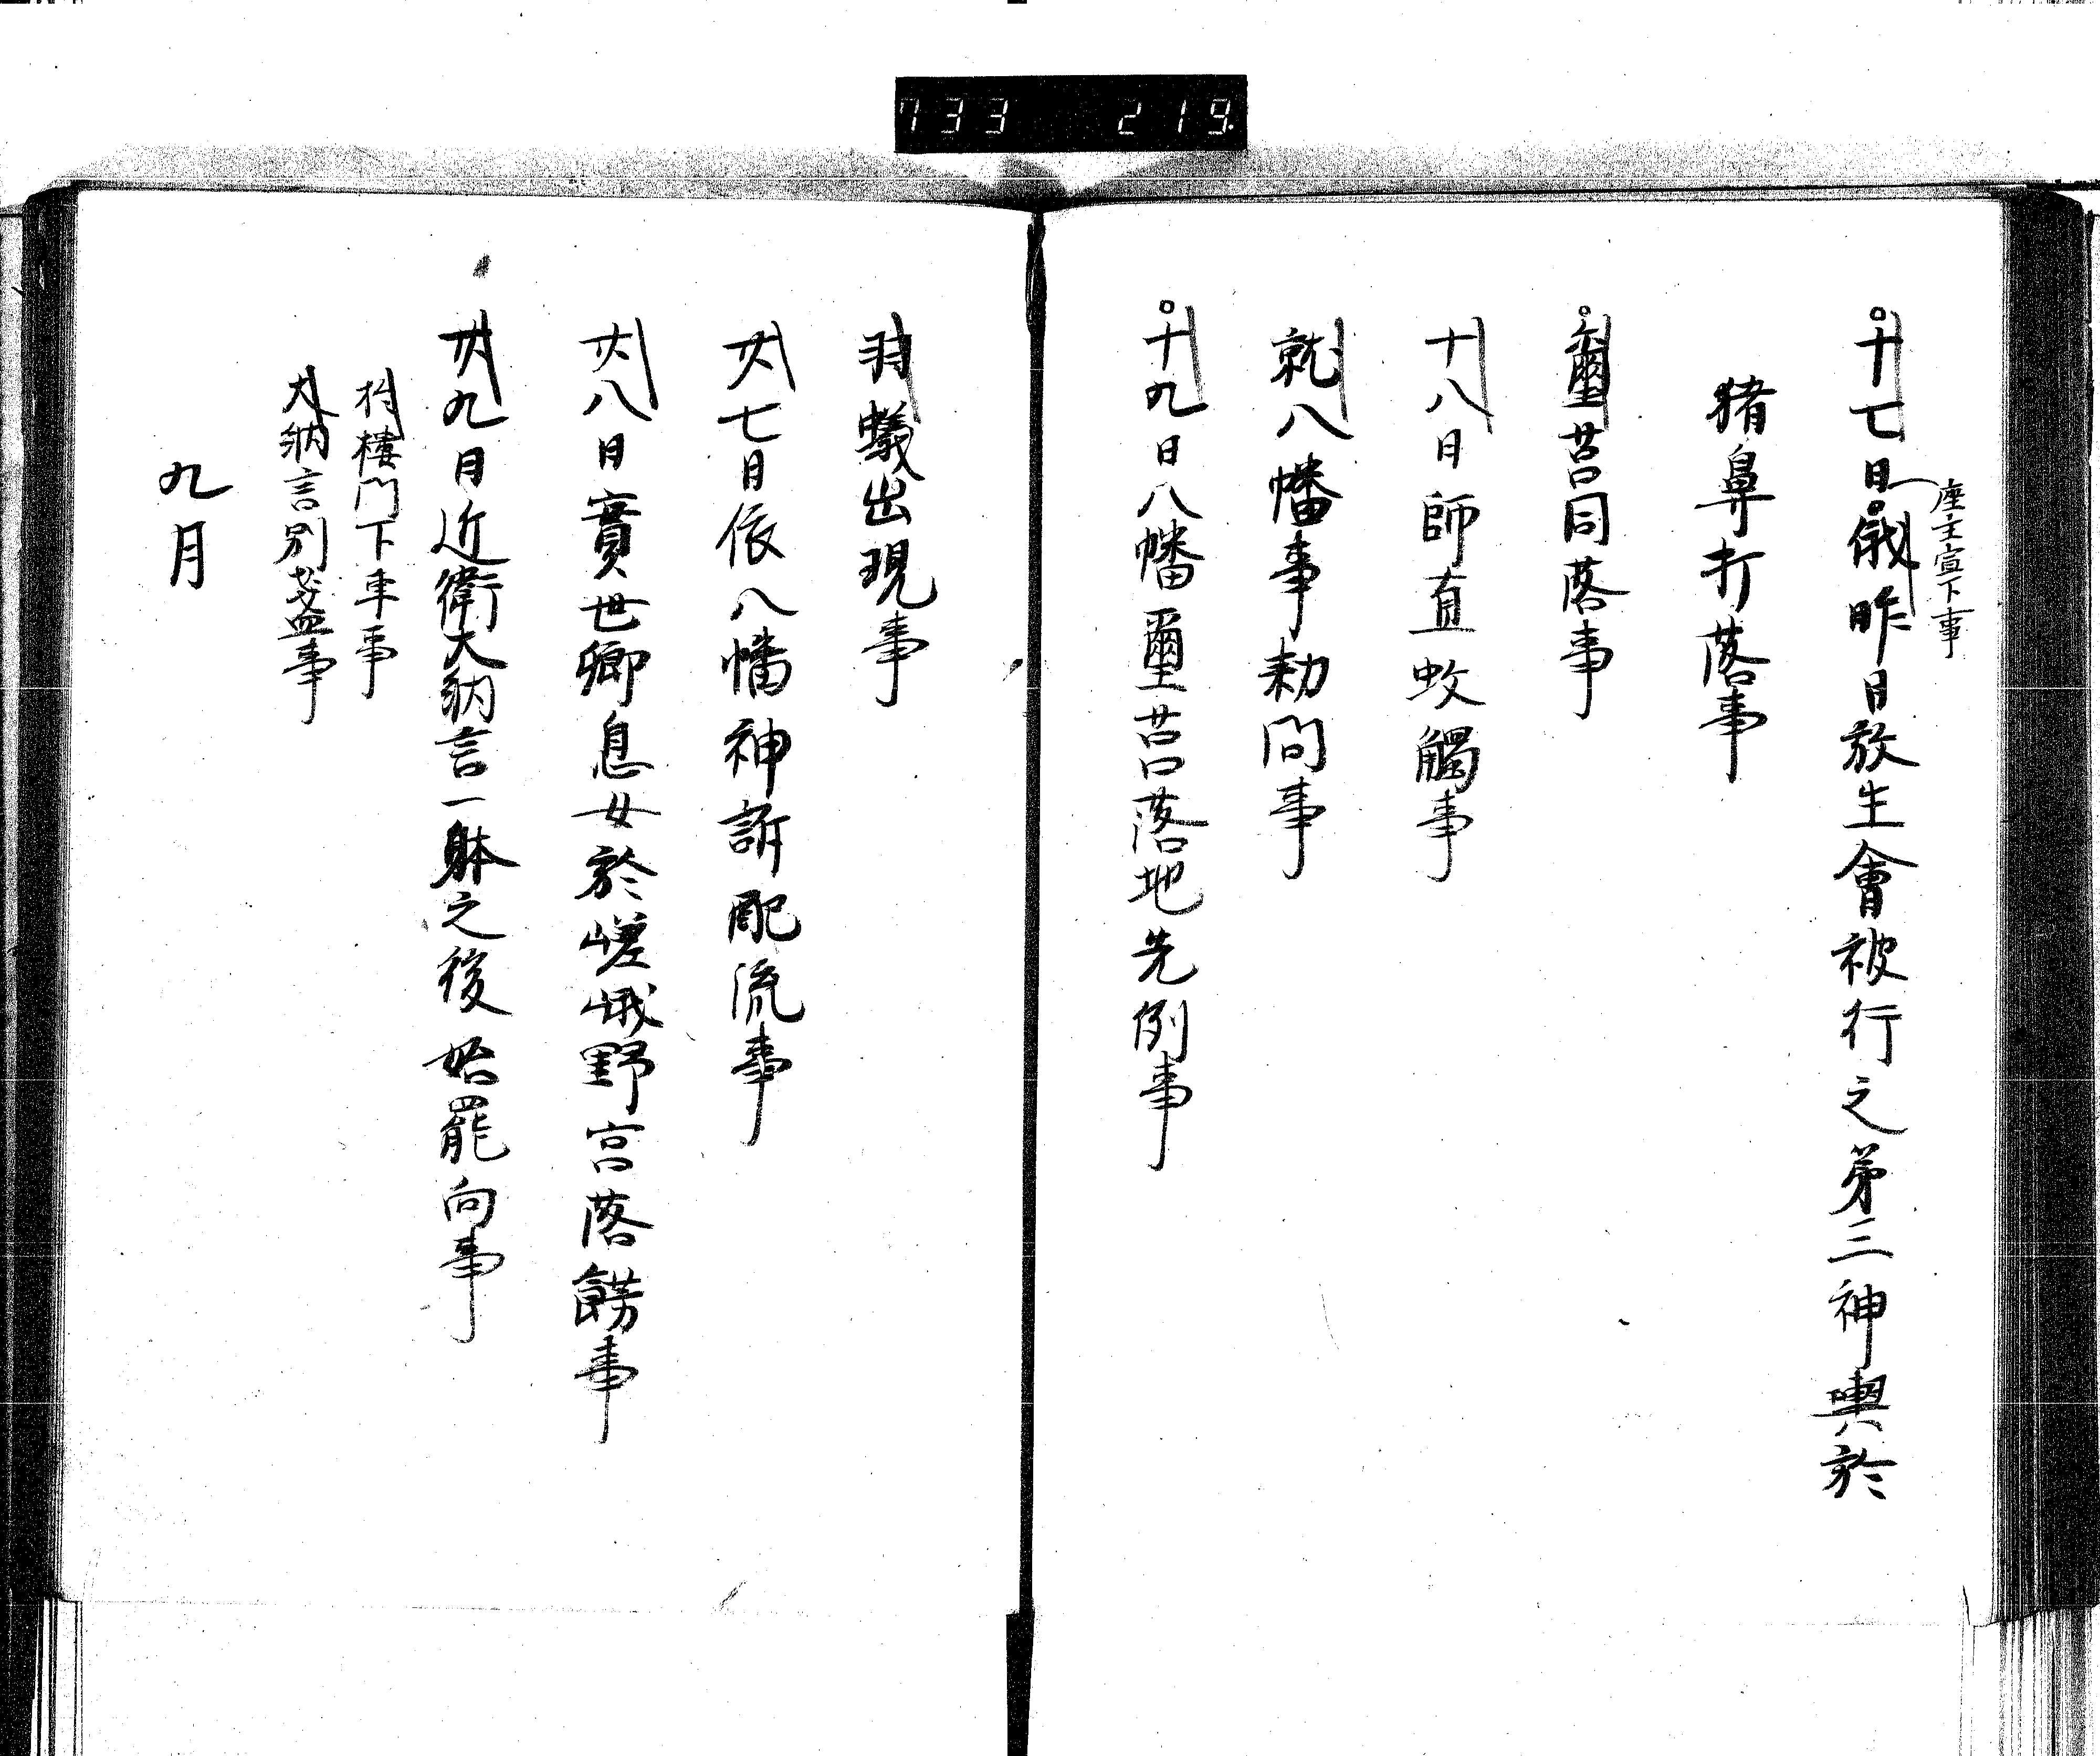 733 219
座主宣下事
十七日俄昨日放生會被行之第三神輿於
猪鼻打落事
璽筥同落事
十八日師直蚊觸事
就八幡事勅問事
十九日八幡璽筥落地先例事
羽蟻出現事
廿七日依八幡神訴配流事
廿八日實世卿息女於嵯峨野宮落餝事
廿九日近衛大納言一躰之後始罷向事
於樓門下車事
大納言別盞事
九月